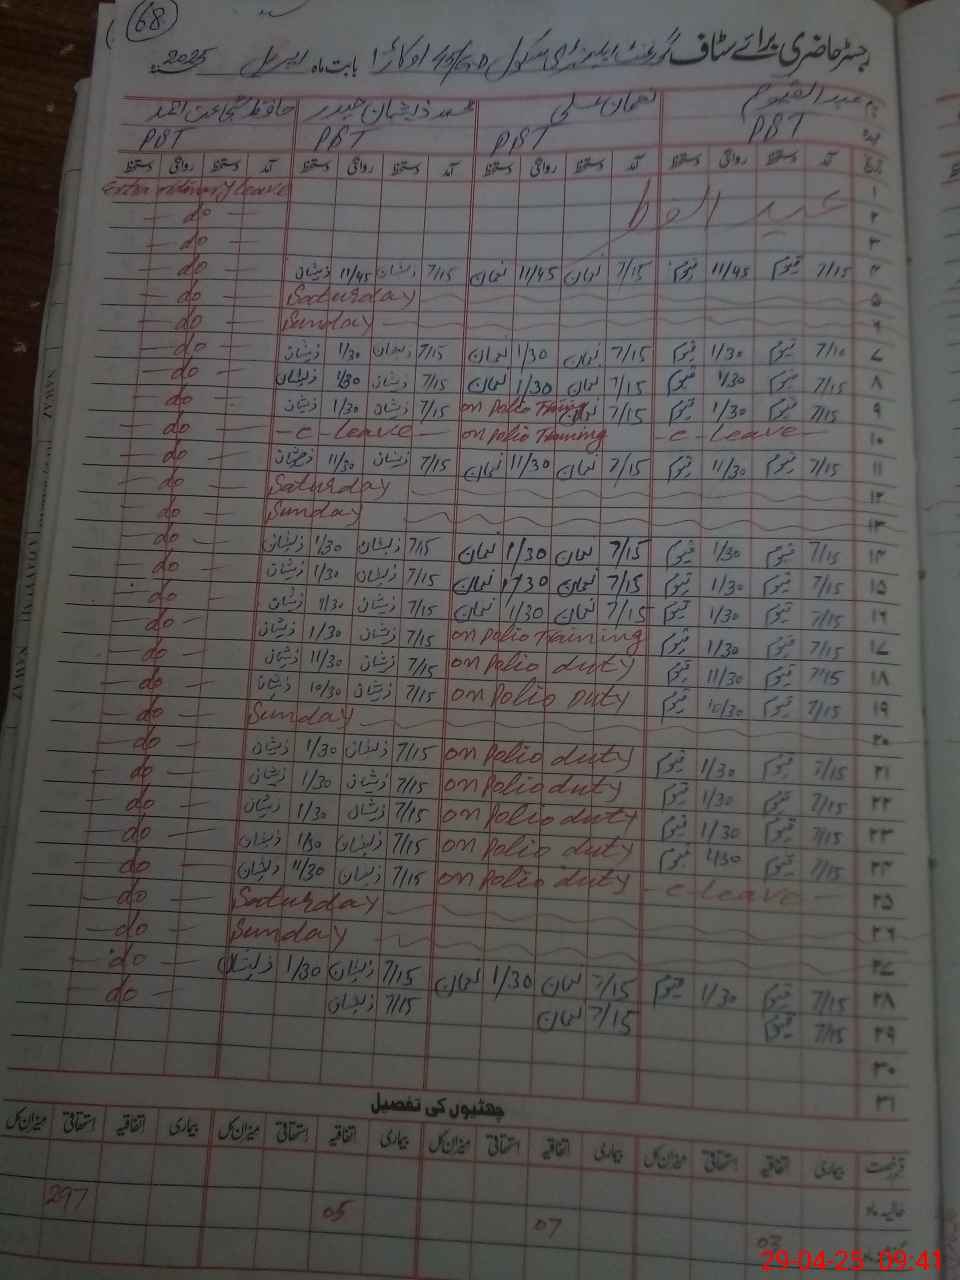 68
رجسٹر حاضری برائے سٹاف گورنمنٹ ایلیمنٹری سکول 45/GD اوکاڑا بابت ماہ اپریل 2025
نام عبدالقیوم نعمان علی محمد ذیشان حیدر حافظ شجاعت احمد
عہدہ PST PST PST PST
تاریخ آمد دستخط روانگی دستخط آمد دستخط روانگی دستخط آمد دستخط روانگی دستخط آمد دستخط روانگی دستخط
۱ عید الفطر Extra ordinary leave
۲ — do —
۳ — do —
۴ 7/15 قیوم 11/45 قیوم 7/15 نعمان 11/45 نعمان 7/15 ذیشان 11/45 ذیشان — do —
۵ Saturday — do —
۶ Sunday — do —
۷ 7/10 قیوم 1/30 قیوم 7/15 نعمان 1/30 نعمان 7/15 ذیشان 1/30 ذیشان — do —
۸ 7/15 قیوم 1/30 قیوم 7/15 نعمان 1/30 نعمان 7/15 ذیشان 1/30 ذیشان — do —
۹ 7/15 قیوم 1/30 قیوم 7/15 نعمان on polio Training 7/15 ذیشان 1/30 ذیشان — do —
۱۰ — c - leave — on polio Training — c - leave — — do —
۱۱ 7/15 قیوم 11/30 قیوم 7/15 نعمان 11/30 نعمان 7/15 ذیشان 11/30 ذیشان — do —
۱۲ Saturday — do —
۱۳ Sunday — do —
۱۴ 7/15 قیوم 1/30 قیوم 7/15 نعمان 1/30 نعمان 7/15 ذیشان 1/30 ذیشان — do —
۱۵ 7/15 قیوم 1/30 قیوم 7/15 نعمان 1/30 نعمان 7/15 ذیشان 1/30 ذیشان — do —
۱۶ 7/15 قیوم 1/30 قیوم 7/15 نعمان 1/30 نعمان 7/15 ذیشان 1/30 ذیشان — do —
۱۷ 7/15 قیوم 1/30 قیوم on polio training 7/15 ذیشان 1/30 ذیشان — do —
۱۸ 7/15 قیوم 11/30 قیوم on polio duty 7/15 ذیشان 11/30 ذیشان — do —
۱۹ 7/15 قیوم 10/30 قیوم on polio duty 7/15 ذیشان 10/30 ذیشان — do —
۲۰ Sunday — do —
۲۱ 7/15 قیوم 1/30 قیوم on polio duty 7/15 ذیشان 1/30 ذیشان — do —
۲۲ 7/15 قیوم 1/30 قیوم on polio duty 7/15 ذیشان 1/30 ذیشان — do —
۲۳ 7/15 قیوم 1/30 قیوم on polio duty 7/15 ذیشان 1/30 ذیشان — do —
۲۴ 7/15 قیوم 1/30 قیوم on polio duty 7/15 ذیشان 1/30 ذیشان — do —
۲۵ — c - leave — on polio duty 7/15 ذیشان 11/30 ذیشان — do —
۲۶ Saturday — do —
۲۷ Sunday — do —
۲۸ 7/15 قیوم 1/30 قیوم 7/15 نعمان 1/30 نعمان 7/15 ذیشان 1/30 ذیشان — do —
۲۹ 7/15 قیوم 7/15 نعمان 7/15 ذیشان — do —
۳۰
۳۱
چھٹیوں کی تفصیل
قسم رخصت بیماری اتفاقیہ استحقاقی میزان کل بیماری اتفاقیہ استحقاقی میزان کل بیماری اتفاقیہ استحقاقی میزان کل بیماری اتفاقیہ استحقاقی میزان کل
حالیہ ماہ
03 07 05 297
29-04-25 09:41